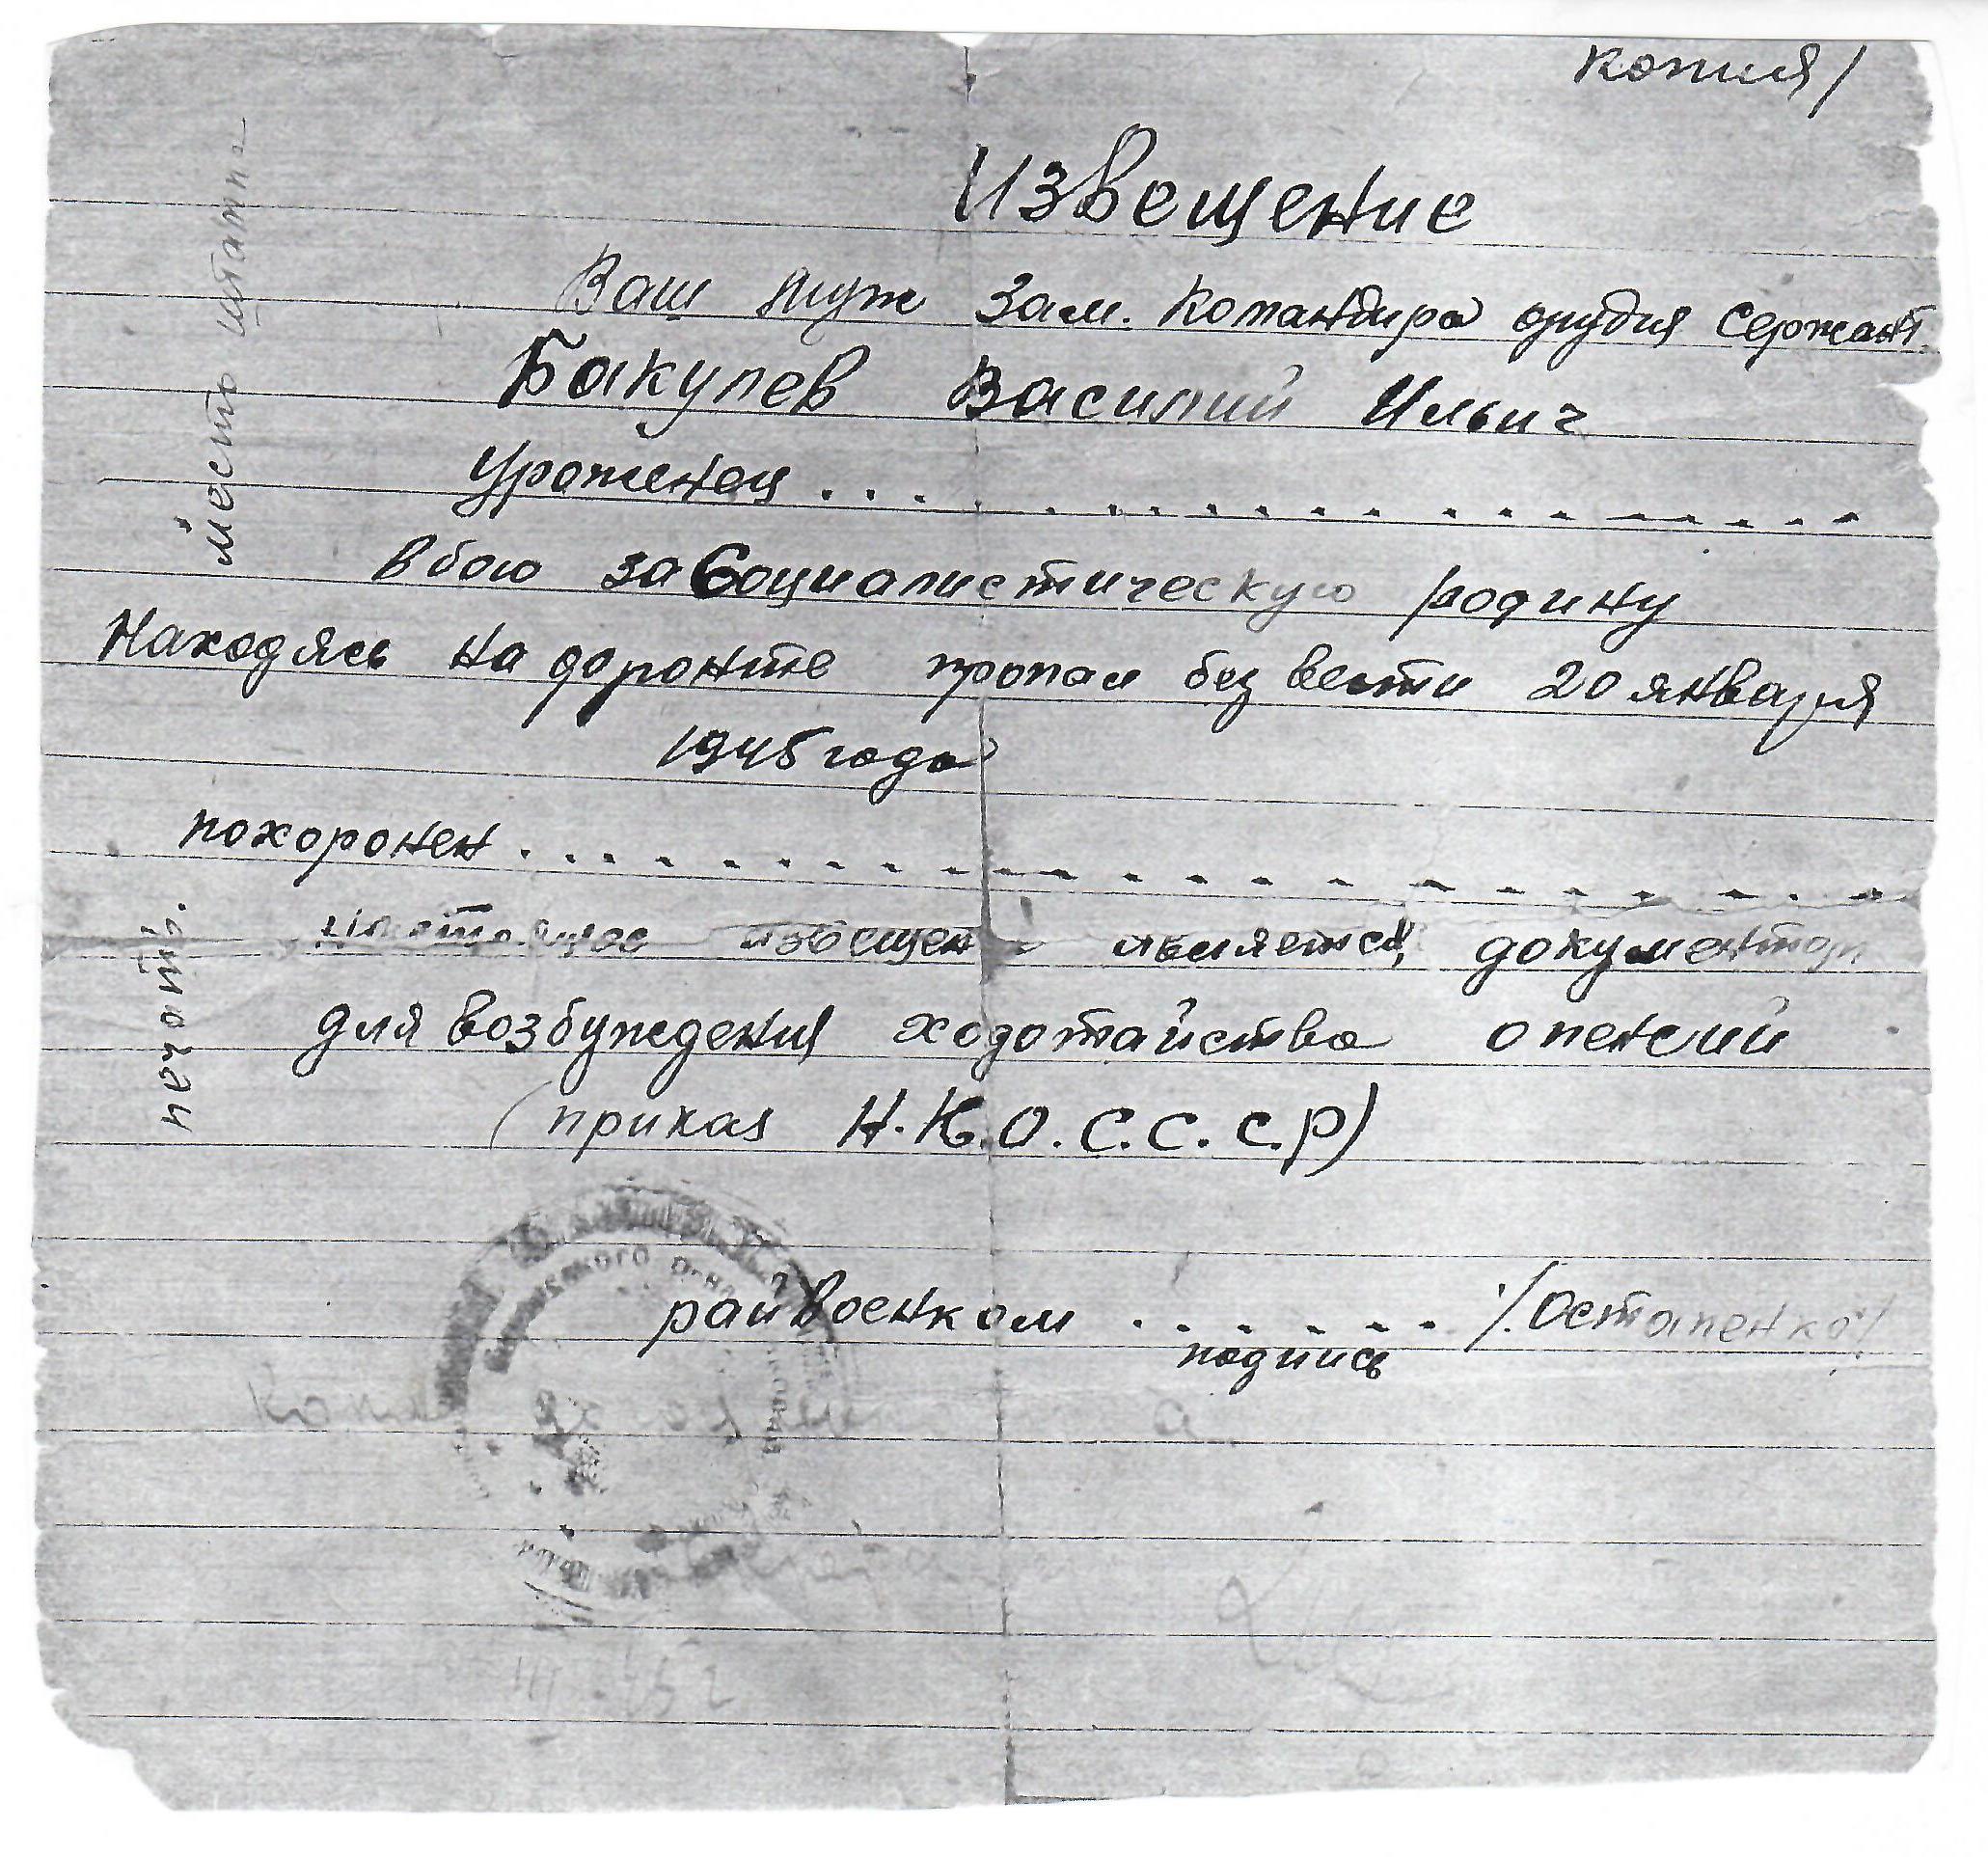 копия/
Извещение
Ваш муж зам. командира орудия сержант.
Бакулев Василий Ильич
уроженец . . . . . . . . . . . . . . . . . .
в бою за Социалистическую родину
находясь на фронте пропал без вести 20 января
1945 года
похоронен . . . . . . . . . . . . . . . . . .
настоящее извещен является документом
для возбуждения ходотайства о пенсии
(приказ Н.К.О.С.С.С.Р)
райвоенком . . . . . . /Остапенко/
подпись
место штампа
печать.